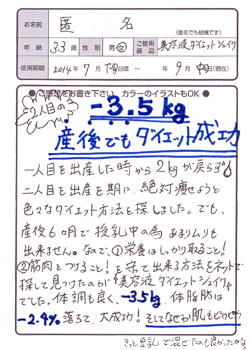 お名前 匿名
(匿名でも結構です)
年齢 33歳 性別 男・女 ご使用商品 美容液ダイエットシェイク
使用期間 2014年7月下旬頃 ～ 年9月中旬(現在)
ご感想をお書き下さい。カラーのイラストもOK
2人目の
-3.5kg
産後でもダイエット成功
一人目を出産した時から2kgが戻らず
二人目を出産を期に、絶対痩せようと
色々なダイエット方法を探しました。でも、
産後6ヶ月で授乳中の為 あまりムリも
出来ません。なので、①栄養はしっかり取ること!
②筋肉をつけること!を守って出来る方法をネットで
探して見つけたのが"美容液ダイエットシェイク"
でした。体調も良く、-3.5kg 体脂肪は
-2.4% 落ちて、大成功! そしてなぜか肌もしっとり
きっと豆乳で混ぜたのも良かったのかな。